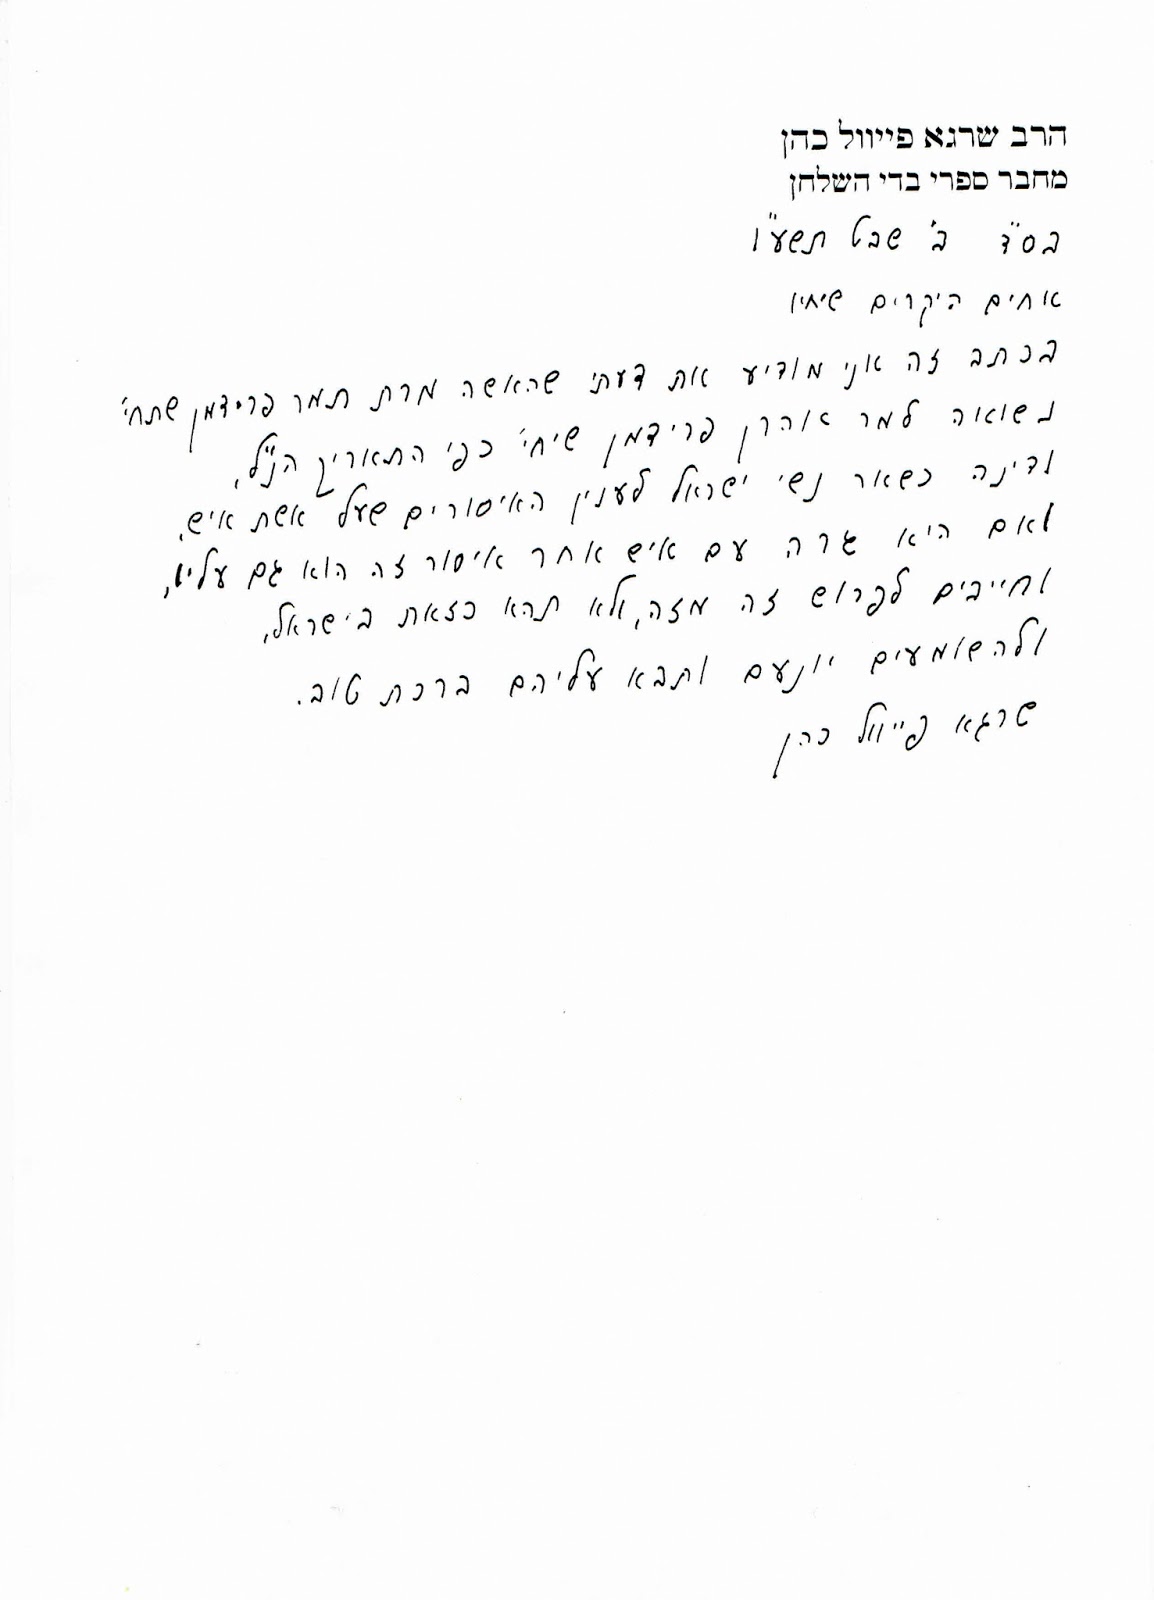 הרב שרגא פייוול כהן
מחבר ספרי בדי השלחן
בס"ד ב' שבט תשע"ו
אחים היקרים שיחיו
בכתב זה אני מודיע את דעתי שהאשה מרת תמר פרידמן שתחי'
נשואה למר אהרן פרידמן שיחי' כפי התאריך הנ"ל,
ודינה כשאר נשי ישראל לענין האיסורים שעל אשת איש,
ואם היא גרה עם איש אחר איסור זה הוא גם עליו,
וחייבים לפרוש זה מזה, ולא תהא כזאת בישראל,
ולהשומעים יונעם ותבא עליהם ברכת טוב.
שרגא פייוול כהן